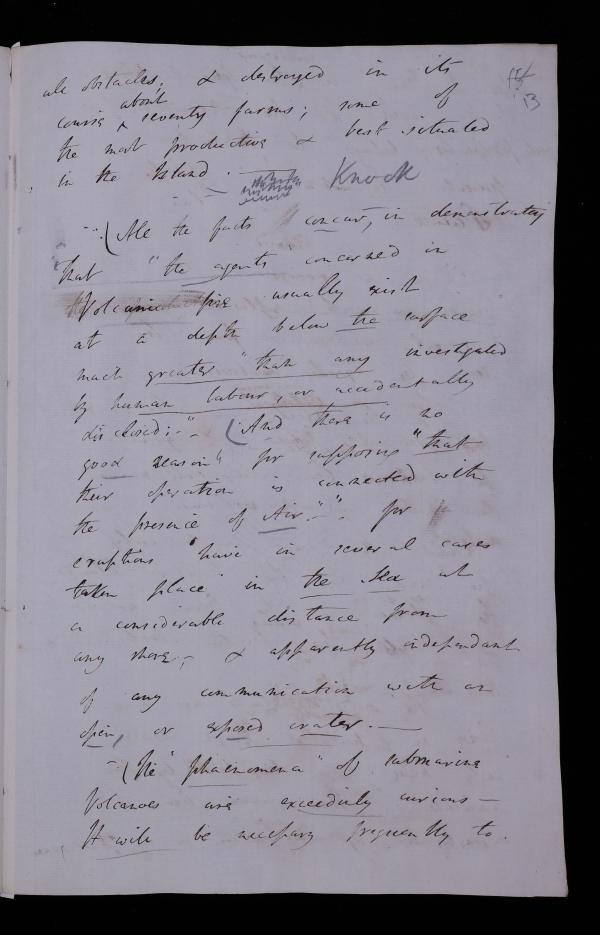 13
all obstacles, & destroyed in its
course about seventy farms; some of
the most productive & best situated
in the Island. — Knock
(All the facts concur, in demonstrating
that "the agents concerned in
Volcanic fire usually exist
at a depth below the surface
much greater "than any investigated
by human labour, or accidentally
disclosed;" – (And there is no
good reason" for supposing "that
their operation is connected with
the presence of Air." – for
eruptions have in several cases
taken place in the Sea at
a considerable distance from
any shore, – & apparently independant
of any communication with an
open, or exposed crater. —
– (The "phaenomena" of submarine
Volcanoes are exceedingly curious –
It will be necessary frequently to